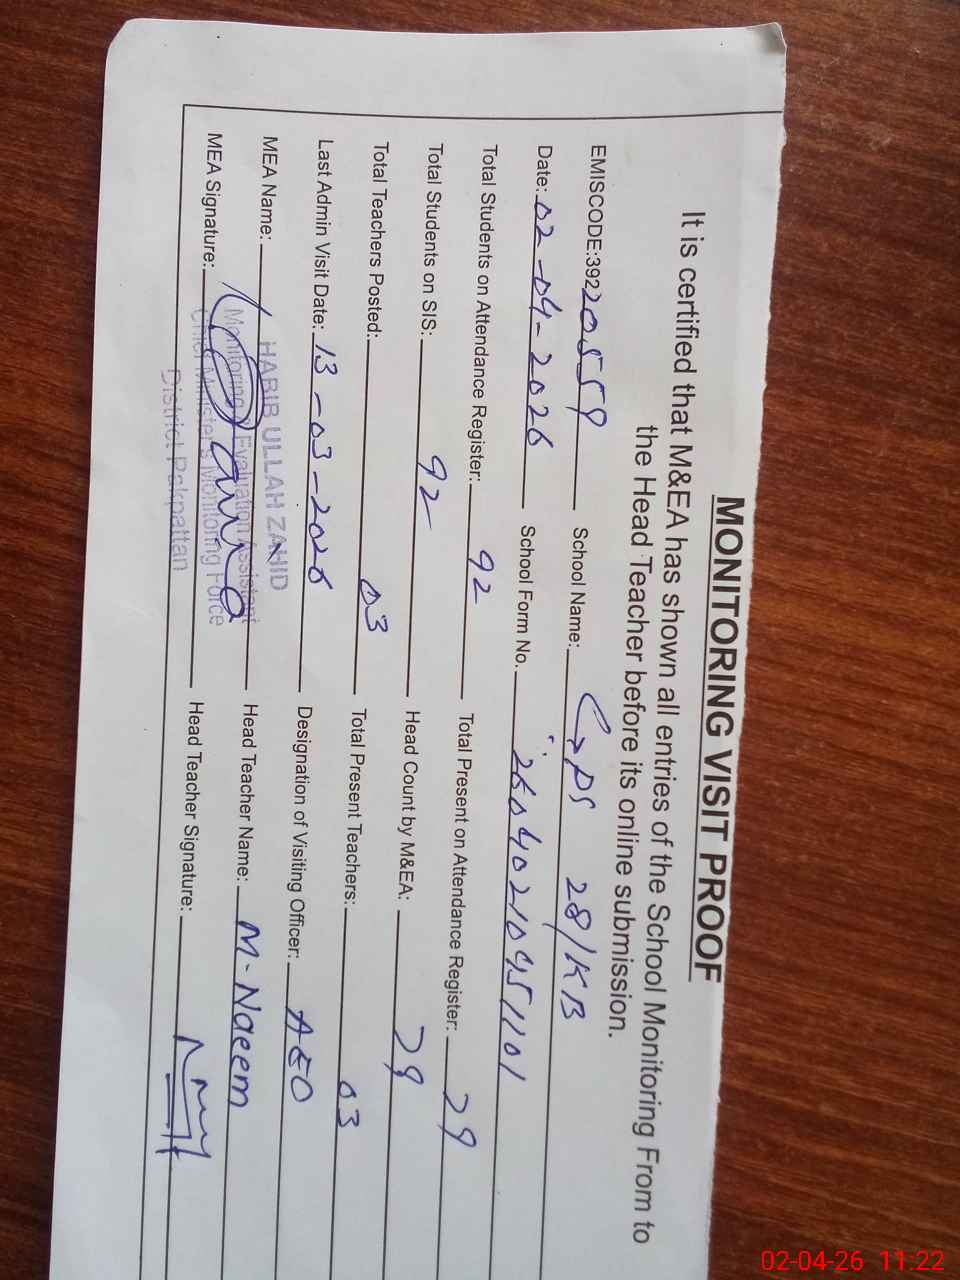 MONITORING VISIT PROOF
It is certified that M&EA has shown all entries of the School Monitoring From to
the Head Teacher before its online submission.
EMISCODE:39220559 School Name: GPS 28/KB
Date: 02-04-2026 School Form No. 26040210451101
Total Students on Attendance Register: 92 Total Present on Attendance Register: 79
Total Students on SIS: 92 Head Count by M&EA: 79
Total Teachers Posted: 03 Total Present Teachers: 03
Last Admin Visit Date: 13-03-2026 Designation of Visiting Officer: AEO
MEA Name: HABIB ULLAH ZAHID Head Teacher Name: M. Naeem
Monitoring & Evaluation Assistant
MEA Signature: Chief Minister's Monitoring Force Head Teacher Signature:
District Pakpattan
02-04-26 11:22